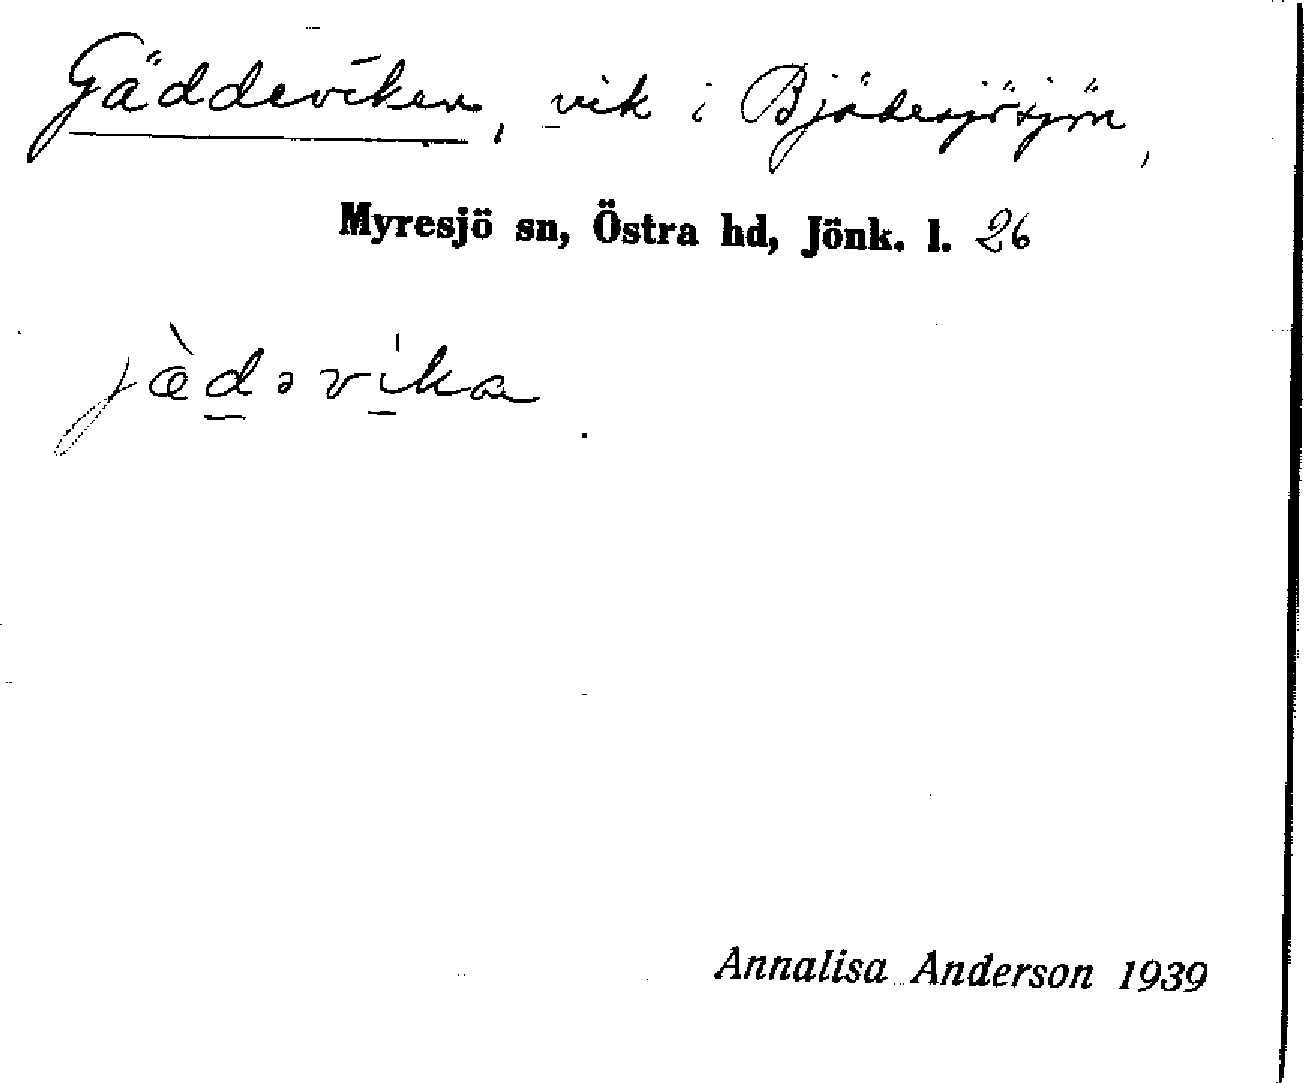 Gäddeviken, vik i Bjädesjösjön,
Myresjö sn, Östra hd, Jönk. l. 26
jæ̀dəvika
Annalisa Anderson 1939